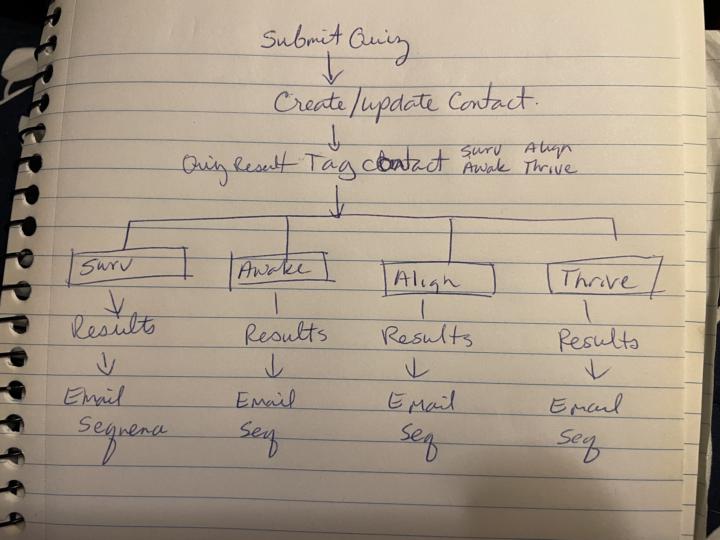 Submit Quiz
Create/update Contact.
Quiz Result Tag contact Surv Align
Awak Thrive
Surv Awake Align Thrive
Results Results Results Results
Email Email Email Email
Sequence Seq Seq Seq